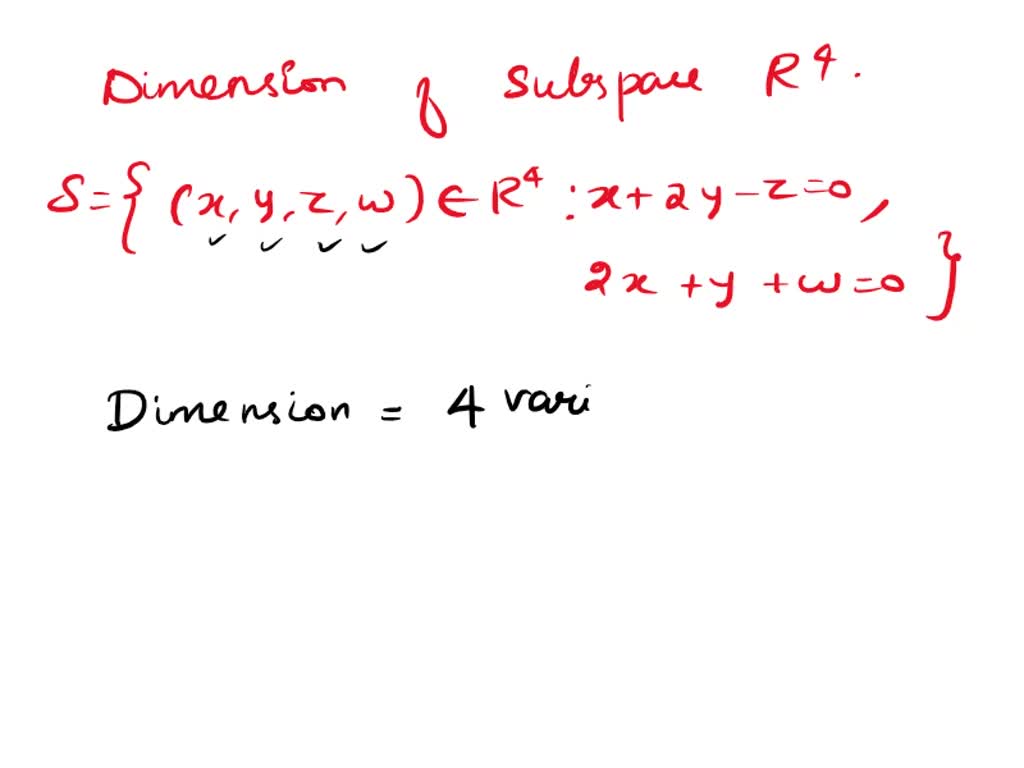 Dimension of Subspace R⁴.
S = { (x, y, z, w) ∈ R⁴ : x + 2y - z = 0,
2x + y + w = 0 }
Dimension = 4 vari